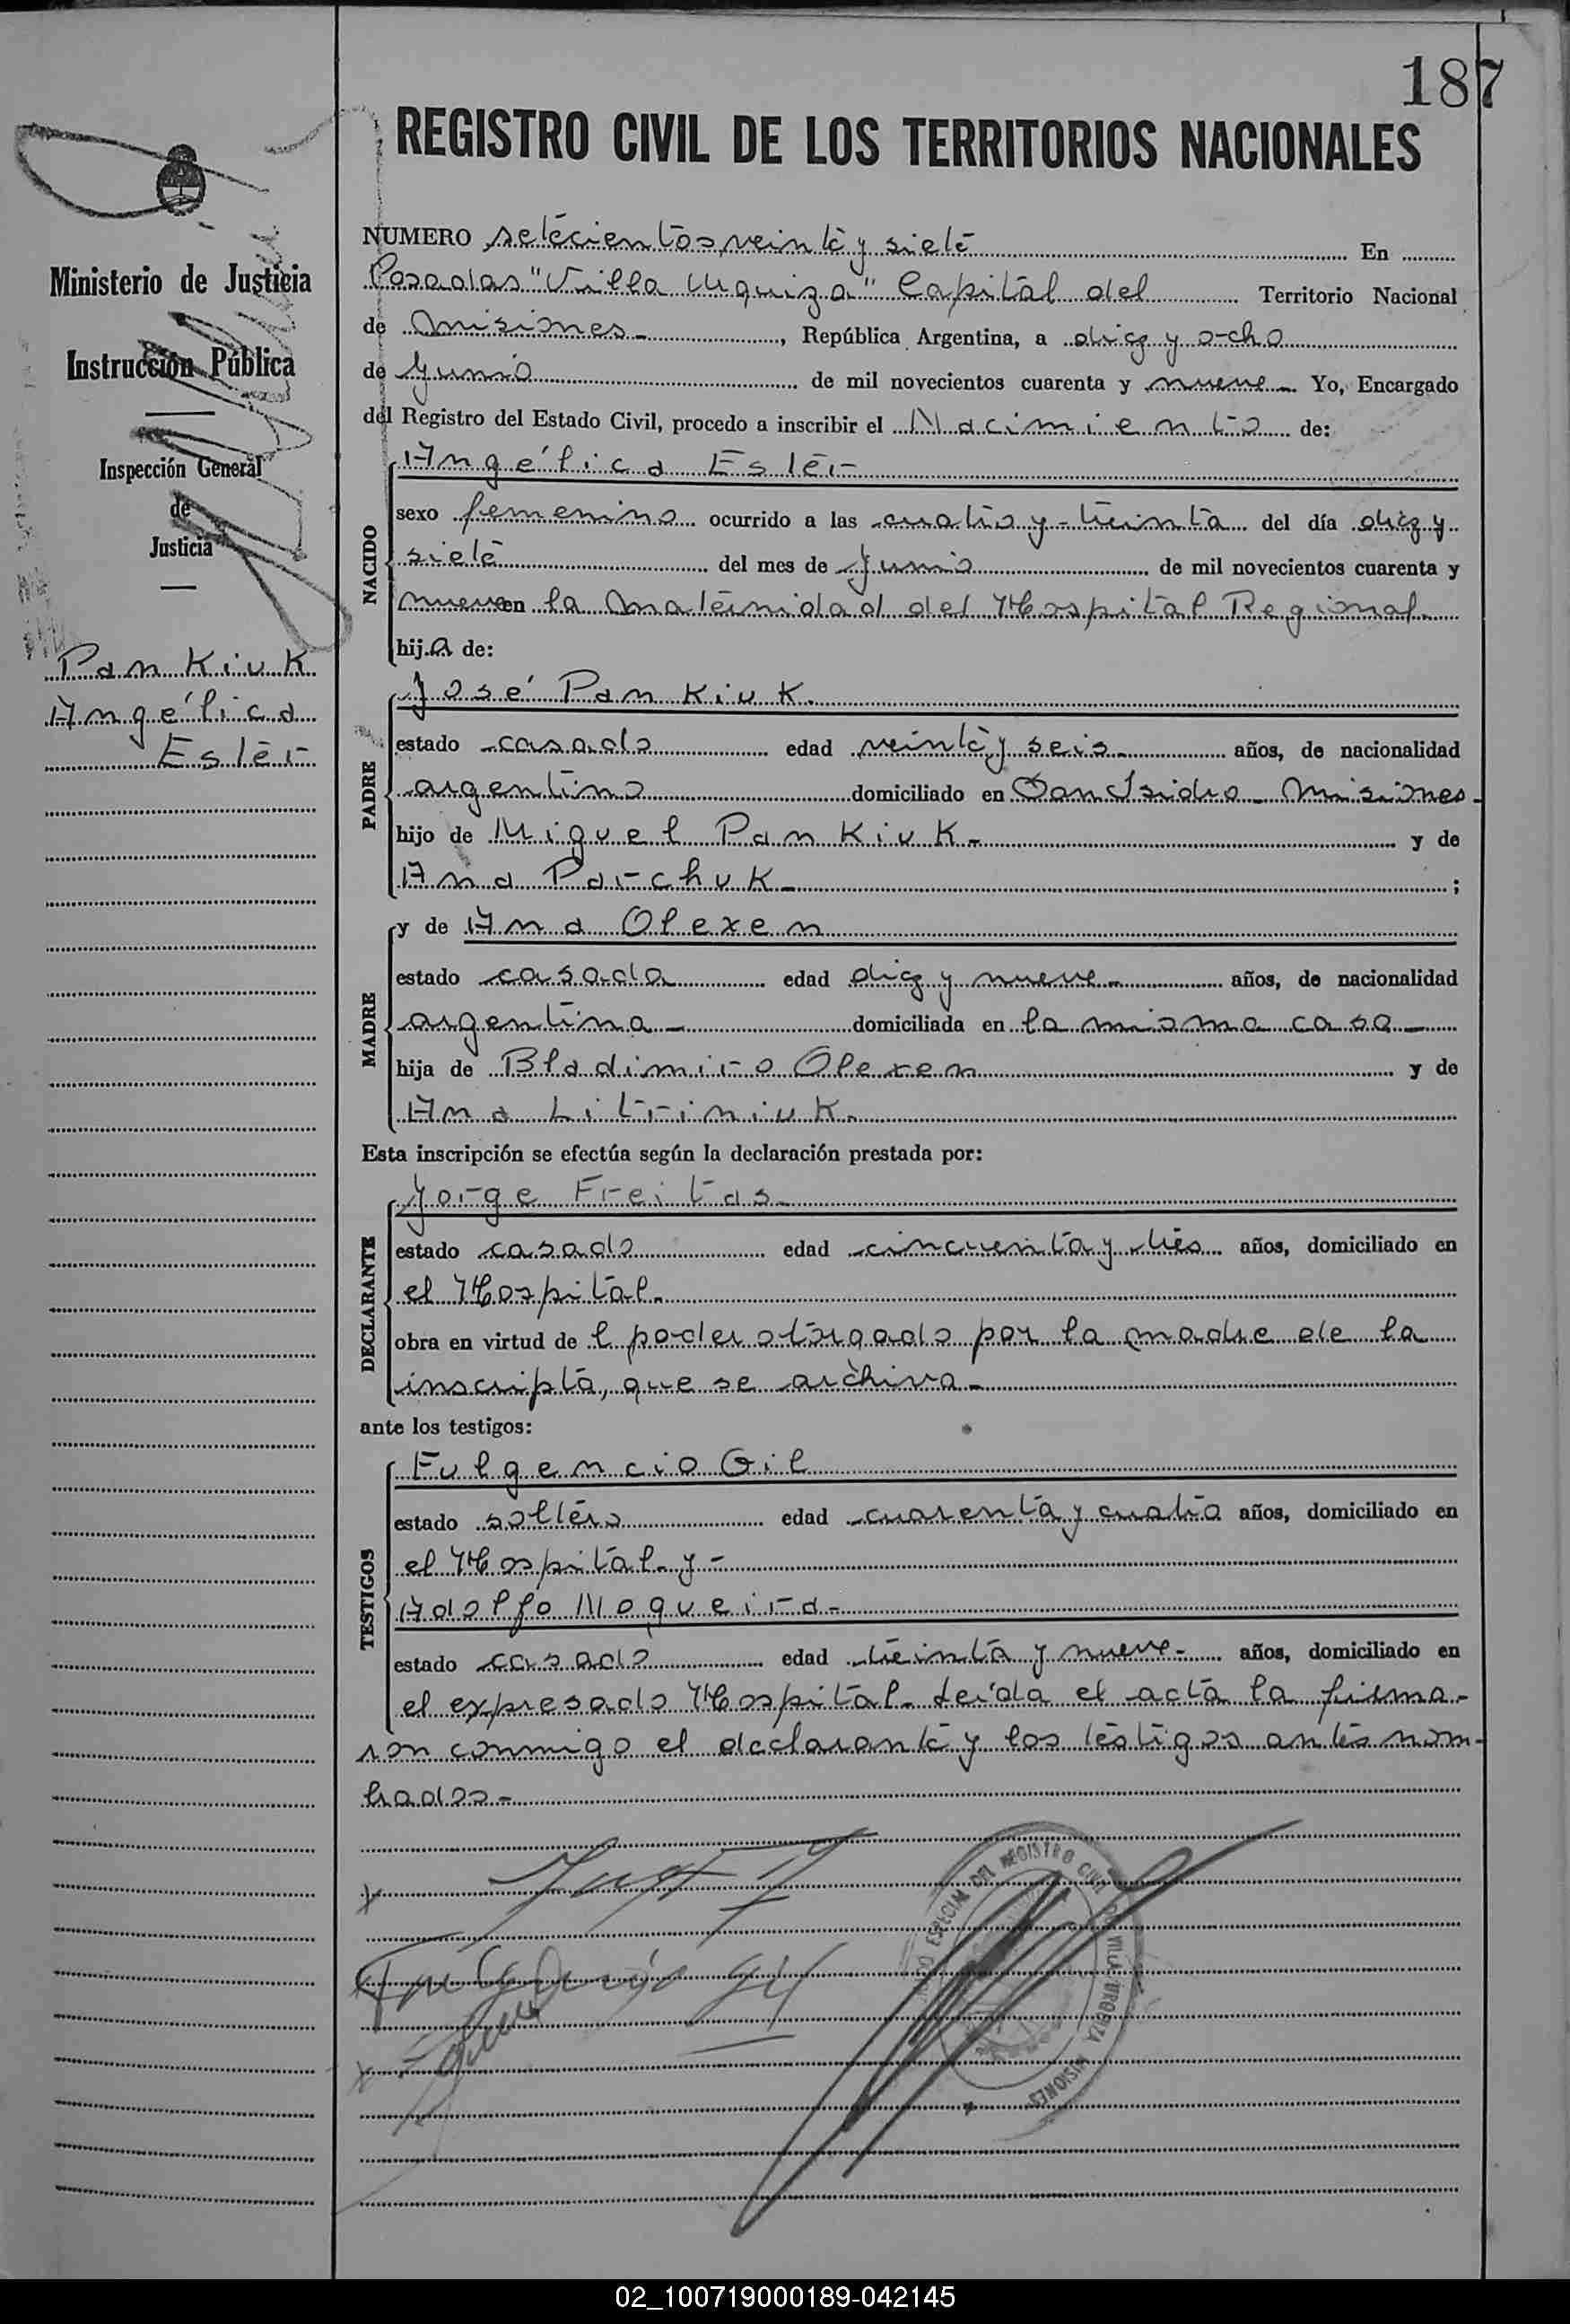 187
REGISTRO CIVIL DE LOS TERRITORIOS NACIONALES
Ministerio de Justicia
Instrucción Pública
Inspección General
de
Justicia
Pankiuk
Angélica
Ester
NUMERO setecientos veinte y siete En
Posadas "Villa Urquiza" Capital del Territorio Nacional
de Misiones_, República Argentina, a diez y ocho
de Junio de mil novecientos cuarenta y nueve_ Yo, Encargado
del Registro del Estado Civil, procedo a inscribir el Nacimiento de:
NACIDO
Angélica Ester
sexo femenino ocurrido a las cuatro y treinta del día diez y
siete del mes de Junio de mil novecientos cuarenta y
nueve en la Maternidad del Hospital Regional_
hija de:
PADRE
José Pankiuk.
estado casado edad veinte y seis_ años, de nacionalidad
argentino domiciliado en San Isidro_ Misiones_
hijo de Miguel Pankiuk_ y de
Ana Parchuk_ ;
MADRE
y de Ana Olexen
estado casada edad diez y nueve_ años, de nacionalidad
argentina_ domiciliada en la misma casa_
hija de Bladimiro Olexen y de
Ana Litriniuk.
Esta inscripción se efectúa según la declaración prestada por:
DECLARANTE
Jorge Freitas_
estado casado edad cincuenta y tres años, domiciliado en
el Hospital.
obra en virtud de l poder otorgado por la madre de la
inscripta, que se archiva_
ante los testigos:
TESTIGOS
Fulgencio Gil
estado soltero edad cuarenta y cuatro años, domiciliado en
el Hospital_ y_
Adolfo Nogueira_
estado casado edad treinta y nueve_ años, domiciliado en
el expresado Hospital_ Leída el acta la firma-
ron conmigo el declarante y los testigos antes nom-
brados_
Fulgencio Gil
ESPECIAL DEL REGISTRO CIVIL DE VILLA URQUIZA MISIONES
02_100719000189-042145